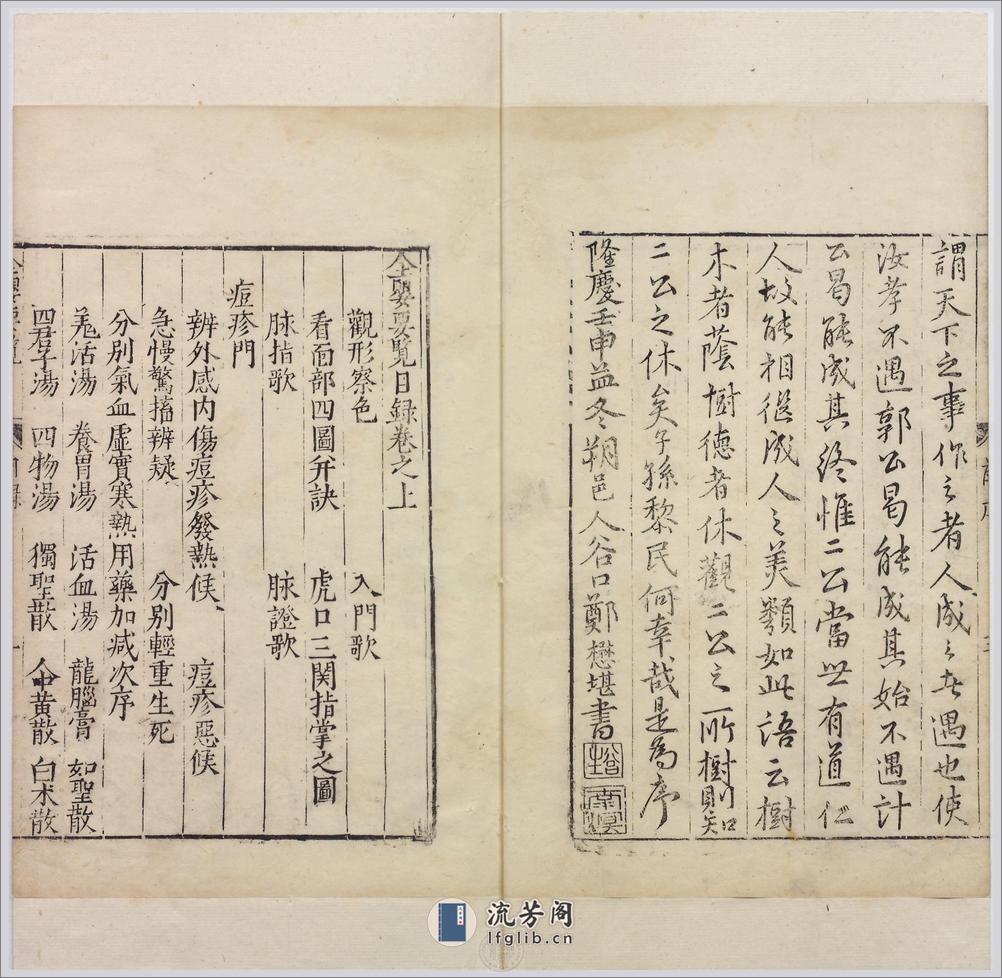 謂天下之事作之者人成之者遇也使
汝孝不遇郭公曷能成其始不遇計
公曷能成其終惟二公當世有道仁
人故能相繼成人之美類如此語云樹
木者蔭樹德者休觀二公之所樹則知
二公之休矣子孫黎民何幸哉是為序
隆慶壬申益冬朔邑人谷口鄭懋堪書
全嬰要覽目録卷之上
觀形察色 入門歌
看面部四圖并訣 虎口三関指掌之圖
脉指歌 脉證歌
痘疹門
辨外感内傷痘疹發熱候 痘疹惡候
急慢驚搐辨疑 分別輕重生死
分別氣血虛實寒熱用藥加减次序
羗活湯 養胃湯 活血湯 龍腦膏 如聖散
四君子湯 四物湯 獨聖散 人中黄散 白术散
全嬰要覽 目録 一
流芳阁
lfglib.cn